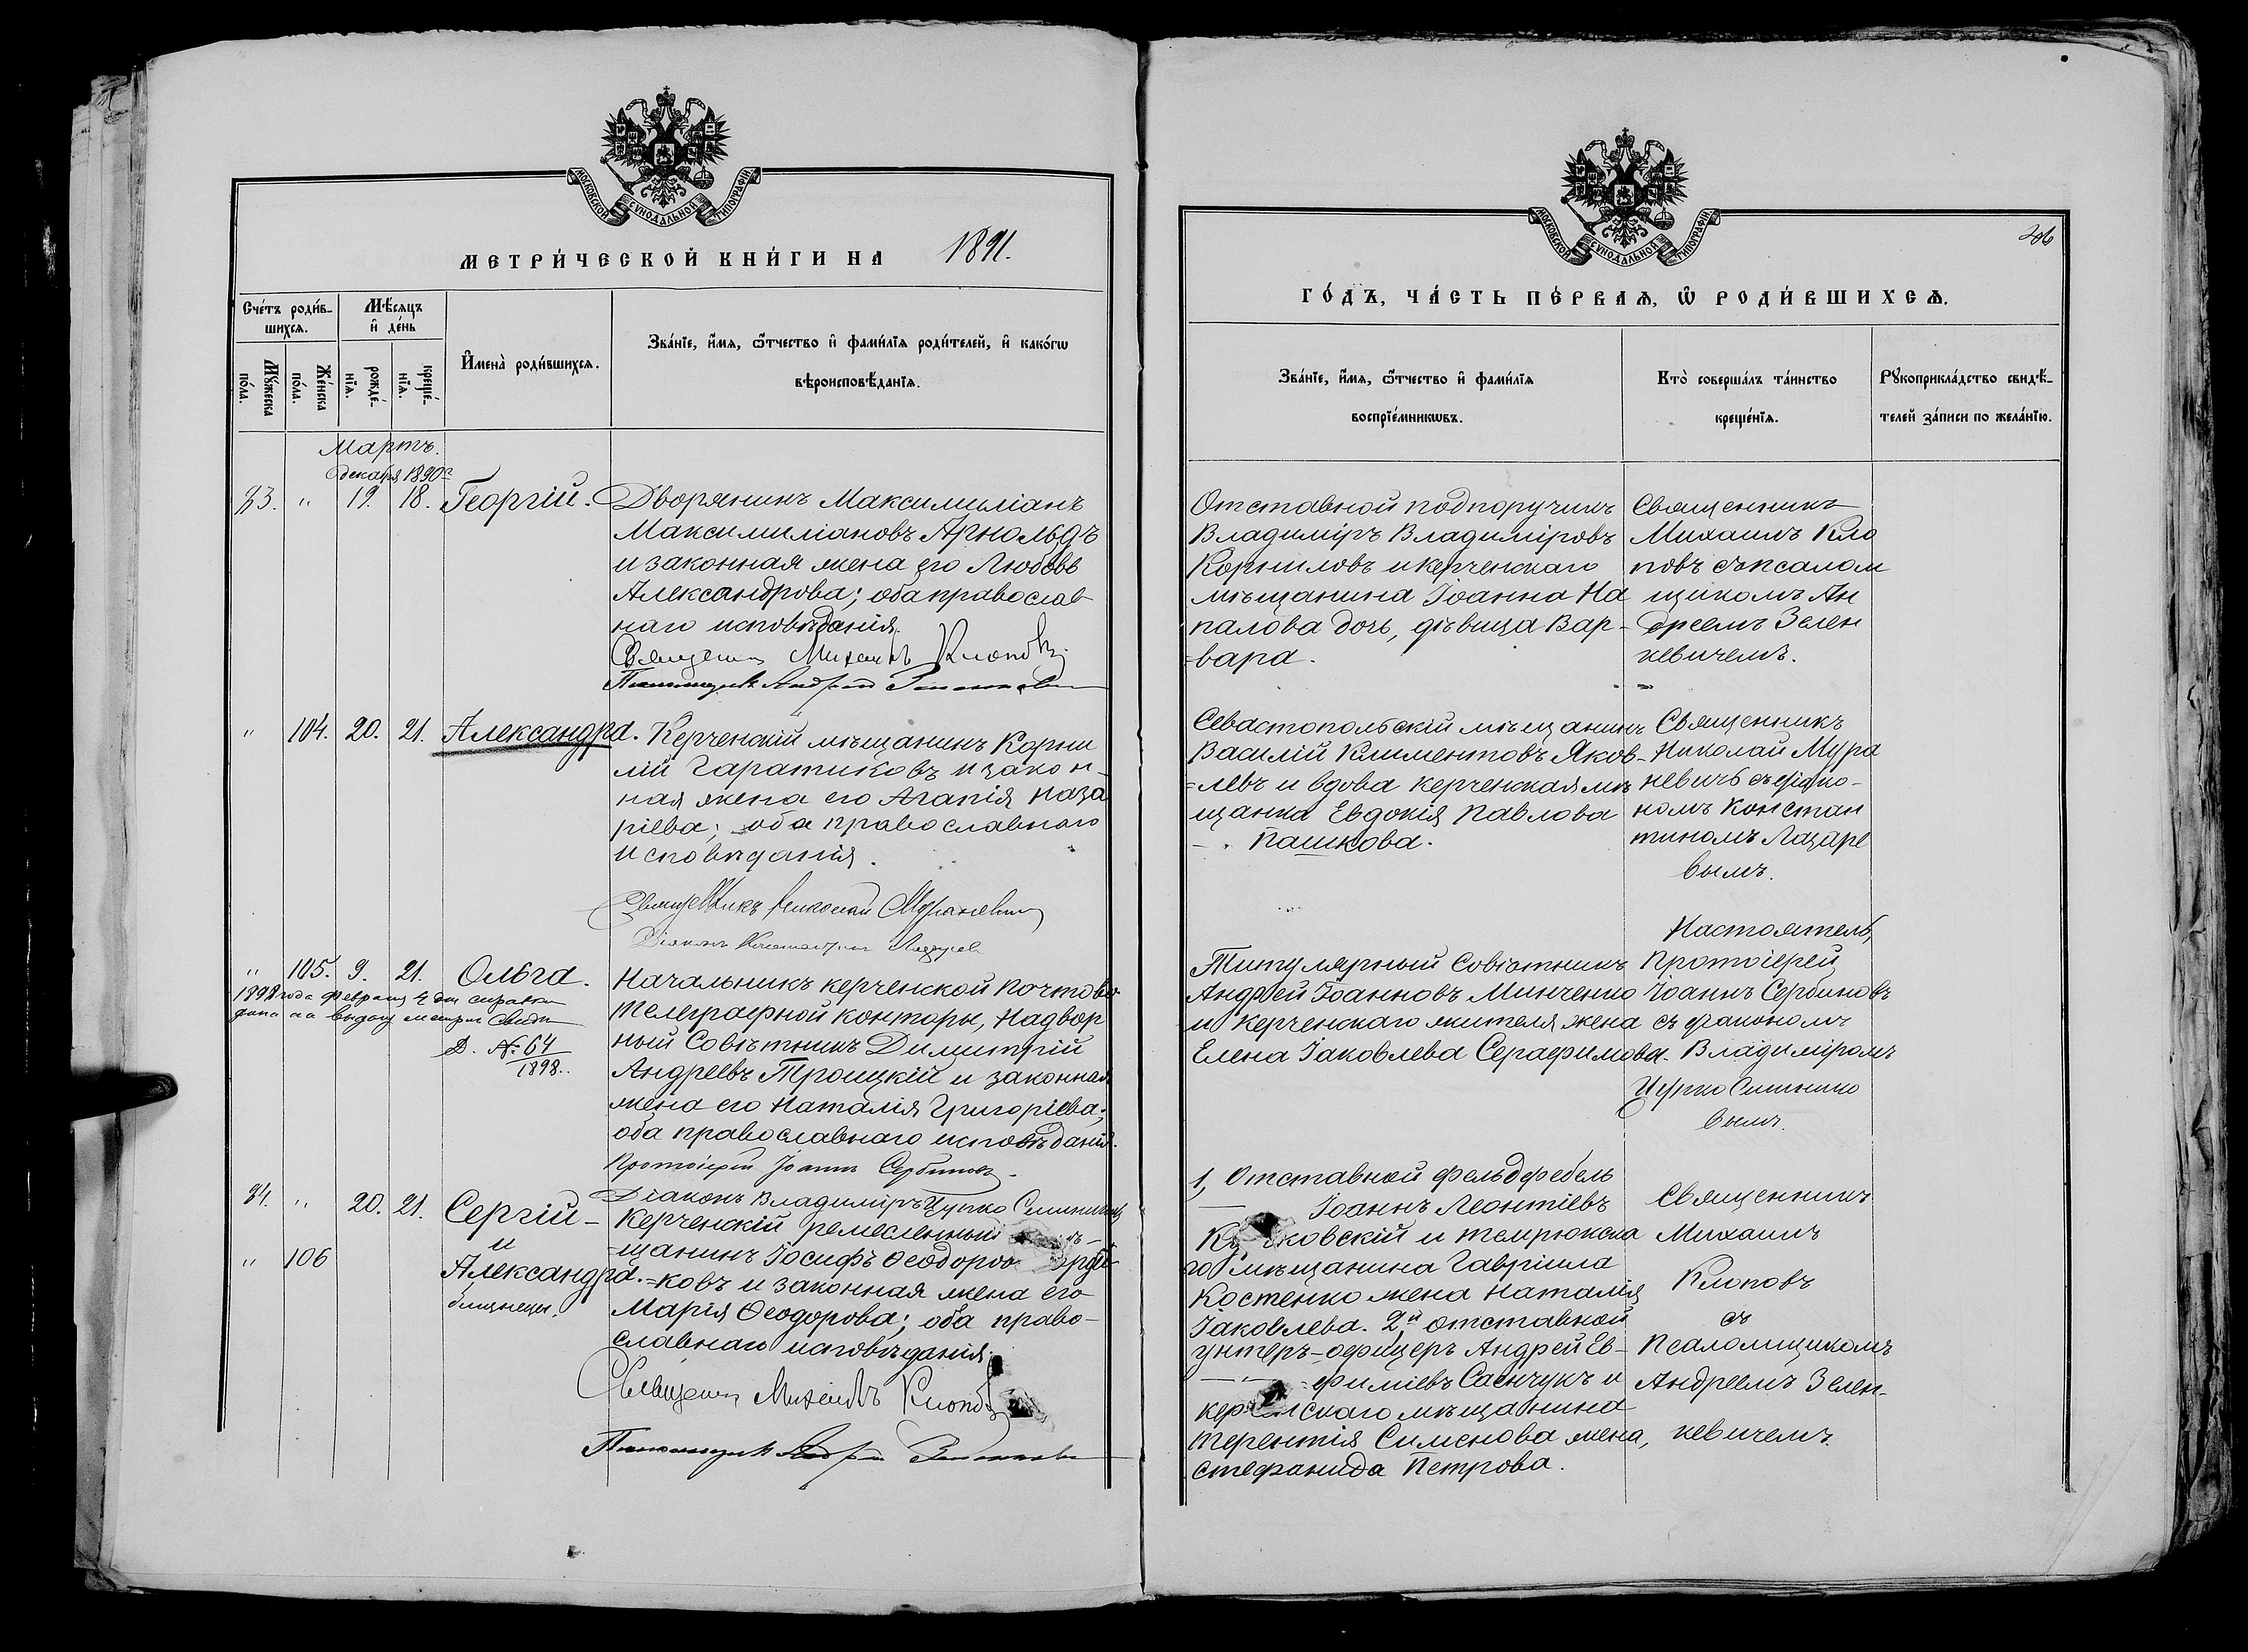 МОСКОВСКОЙ СѴНОДАЛЬНОЙ ТИПОГРАФІИ
МЕТРИ́ЧЕСКОЙ КНИ́ГИ НА 1891.
Сче́тъ роди́в-
шихся.
Мѣ́сяцъ
и҆ де́нь
Мꙋ́жеска
по́ла.
Же́нска
по́ла.
рожде́-
нїя.
креще́-
нїя.
И҆мена̀ роди́вшихсѧ.
Зва́нїе, и҆́мѧ, ѻ҆́тчество и҆ фами́лїѧ роди́телей, и҆ како́гѡ
вѣроисповѣ́данїѧ.
Мартъ.
декабря 1890 г
83. " 19. 18. Георгій.
Дворянинъ Максимиліанъ
Максимиліановъ Арнольдъ
и законная жена его Любовь
Александрова; оба православ-
наго исповѣданія.
Священникъ Михаилъ Клоповъ
Псаломщикъ Андрей Зеленкевичъ
" 104. 20. 21. Александра.
Керченскій мѣщанинъ Корни
лій Гаратиковъ и закон-
ная жена его Агапія Наза
ріева; оба православнаго
исповѣданія.
Священникъ Николай Мураневичъ
Діаконъ Константинъ Лазарев
" 105. 9. 21. Ольга.
1898 года февраля 4 дня справка
дана на выдачу метрич свид
Д. № 64
1898.
Начальникъ керченской почтово
телеграфной конторы, Надвор
ный Совѣтникъ Димитрій
Андреевъ Троицкій и законная
жена его Наталія Григоріева;
оба православнаго исповѣданія.
Протоіерей Іоаннъ Сербиновъ
Діаконъ Владиміръ Цупко
84. " 20. 21. Сергій
и
" 106 Александра.
близнецы.
Керченскій ремесленный
щанинъ Іосифъ Ѳеодоро
ковъ и законная жена его
Марія Ѳеодорова; оба право-
славнаго исповѣданія.
Священникъ Михаилъ Клоповъ
Псаломщикъ Андрей Зеленкевичъ
МОСКОВСКОЙ СѴНОДАЛЬНОЙ ТИПОГРАФІИ
206
ГО́ДЪ, ЧА́СТЬ ПЕ́РВАѦ, Ѡ҆ РОДИ́ВШИХСѦ.
Зва́нїе, и҆́мѧ, ѻ҆́тчество и҆ фами́лїѧ
воспрїе́мникѡвъ.
Кто̀ соверша́лъ та́инство
креще́нїѧ.
Рꙋкоприкла́дство свидѣ́-
телей за́писи по жела́нїю.
Отставной подпоручикъ
Владиміръ Владиміровъ
Корниловъ и керченскаго
мѣщанина Іоанна На
палова дочь, дѣвица Вар-
вара.
Священникъ
Михаилъ Кло
повъ съ псалом
щикомъ Ан
дреемъ Зелен
кевичемъ.
Севастопольскій мѣщанинъ
Василій Климентовъ Яков-
левъ и вдова керченская мѣ
щанка Евдокія Павлова
Пашкова.
Священникъ
Николай Мура
невичъ съ діако-
номъ Констан
тиномъ Лазаре
вымъ.
Титулярный Совѣтникъ
Андрей Іоанновъ Минченко
и керченскаго жителя жена
Елена Іаковлева Серафимова.
Настоятель,
Протоіерей
Іоаннъ Сербиновъ
съ діакономъ
Владиміромъ
Цупко
вымъ.
1, Отставной фельдфебель
Іоаннъ Леонтіевъ
ковскій и темрюкска
го мѣщанина Гавріила
Костенко жена Наталія
Іаковлева. 2й отставной
унтеръ-офицеръ Андрей Ев-
фиміевъ Савчукъ и
керченскаго мѣщанина
Терентія Сименова жена,
Стефанида Петрова.
Священникъ
Михаилъ
Клоповъ
съ
Псаломщикомъ
Андреемъ Зелен-
кевичемъ.